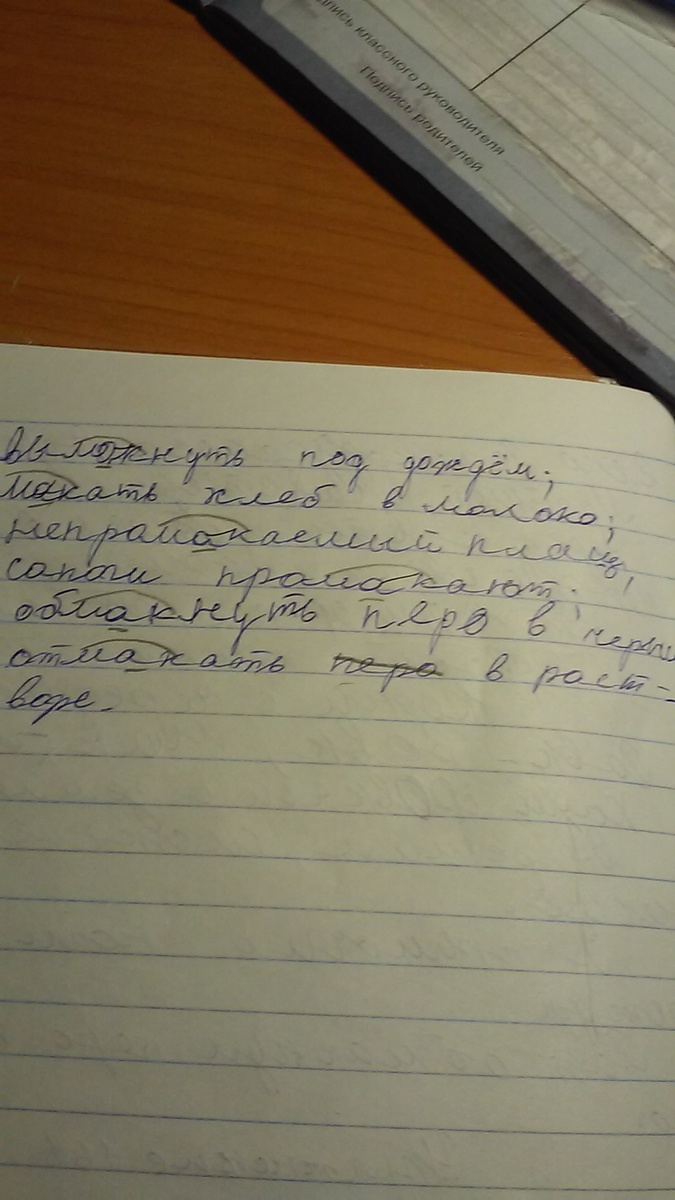 пись классного руководителя
Подпись родителей
вымокнуть под дождём;
макать хлеб в молоко;
непрамокаемый плащ,
сапоги прамокают;
обмакнуть перо в черни
отмакать пера в раст-
воре.